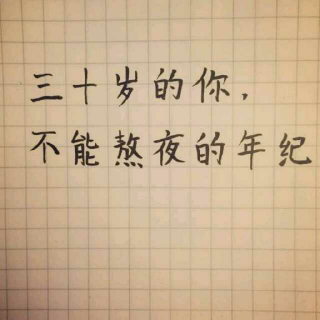 三十岁的你,
不能熬夜的年纪